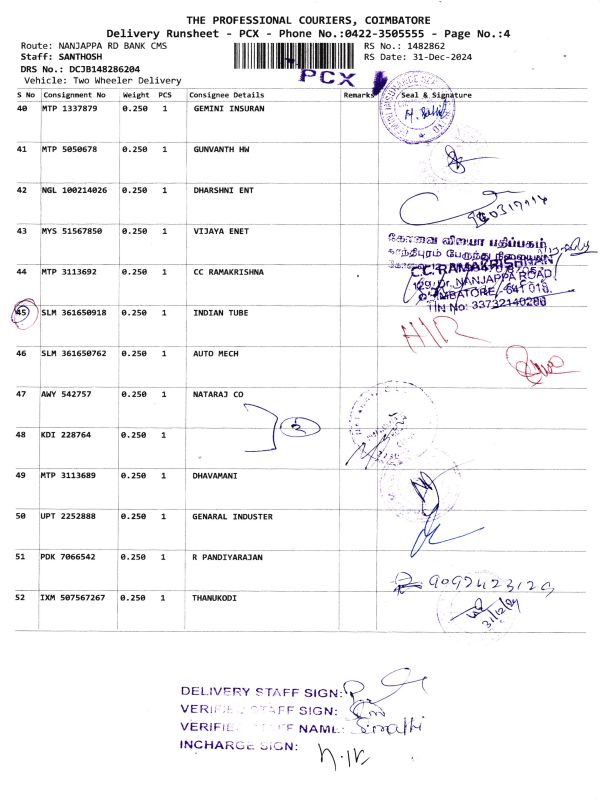 THE PROFESSIONAL COURIERS, COIMBATORE
Delivery Runsheet - PCX - Phone No.:0422-3505555 - Page No.:4
Route: NANJAPPA RD BANK CMS
RS No.: 1482862
Staff: SANTHOSH
RS Date: 31-Dec-2024
DRS No.: DCJB148286204
PCX
Vehicle: Two Wheeler Delivery
S No Consignment No Weight PCS Consignee Details Remarks Seal & Signature
40 MTP 1337879 0.250 1 GEMINI INSURAN
41 MTP 5050678 0.250 1 GUNVANTH HW
42 NGL 100214026 0.250 1 DHARSHNI ENT
43 MYS 51567850 0.250 1 VIJAYA ENET
கோவை விஜயா பதிப்பகம்
காந்திபுரம் பேருந்து நிலையம்
44 MTP 3113692 0.250 1 CC RAMAKRISHNA
C.C. RAMAKRISHNAN
129, Dr. NANJAPPA ROAD
COIMBATORE - 641 018.
TIN No: 33732140280
45 SLM 361650918 0.250 1 INDIAN TUBE
46 SLM 361650762 0.250 1 AUTO MECH
47 AWY 542757 0.250 1 NATARAJ CO
2
48 KDI 228764 0.250 1
49 MTP 3113689 0.250 1 DHAVAMANI
50 UPT 2252888 0.250 1 GENARAL INDUSTER
51 PDK 7066542 0.250 1 R PANDIYARAJAN
52 IXM 507567267 0.250 1 THANUKODI
31/12/24
DELIVERY STAFF SIGN:
VERIFIED STAFF SIGN:
VERIFIED STAFF NAME:
INCHARGE SIGN: